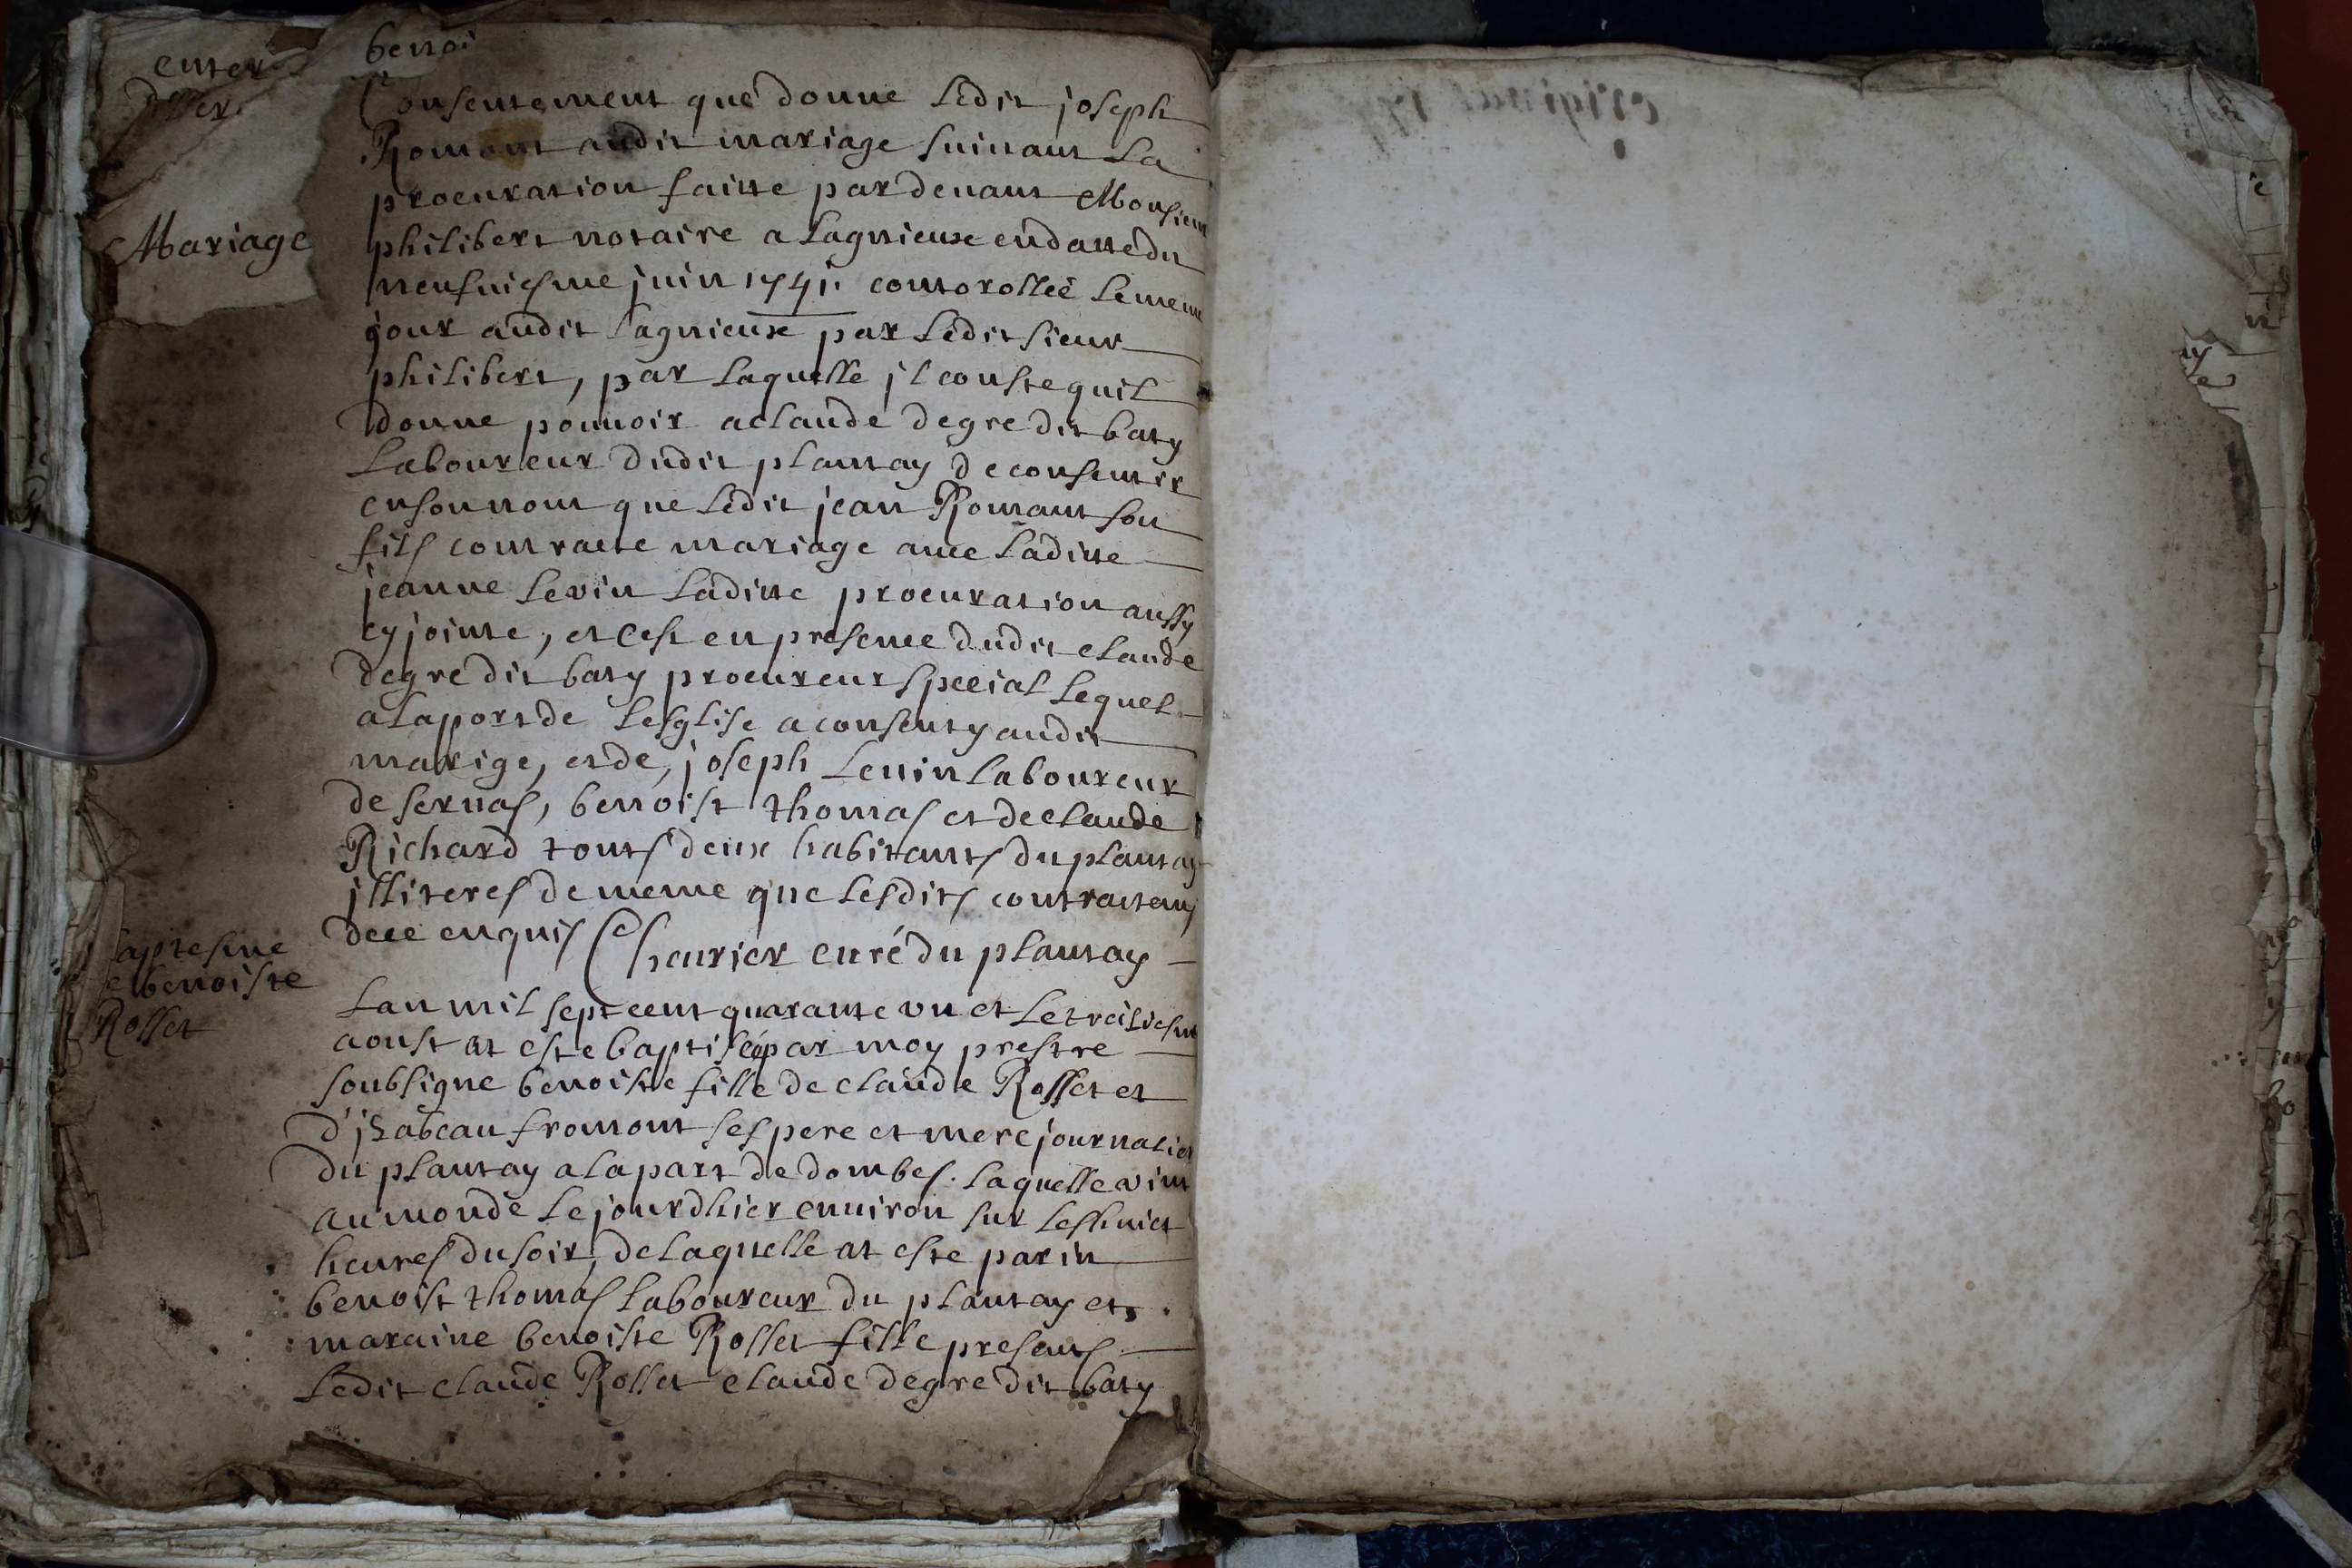 enter
benoi
Consentement que donne ledit joseph
Romant audit mariage suivant la
procuration faitte pardevant Monsieur
philibert notaire a lagnieux en datte du
neufviesme juin 1741. controllée le meme
jour audit lagnieux par ledit sieur
philibert, par laquelle jl conste quil
donne pouvoir a claude degre dit baty
Laboureur dudit plantay de consentir
en son nom que ledit jean Romant son
fils contracte mariage avec laditte
jeanne levin laditte procuration aussy
cy jointe, et cest en presence dudit claude
degre dit baty procureur special lequel
a la port de lesglise a consenty audit
marige, et de, joseph Levin laboureur
de servas, benoist thomas et de claude
Richard touts deux habitants du plantay
jlliteres de meme que lesdits contractans
de ce enquis Cheurier curé du plantay
Mariage
Lan mil sept cent quarante un et le treisiesme
aoust at este baptisée par moy prestre
soubsigne benoiste fille de claude Rollet et
d'jsabeau fromont ses pere et mere journalier
du plantay a la part de dombes. laquelle vint
au monde le jourdhier environ sur les huict
heures du soir, de laquelle at este parin
benoist thomas laboureur du plantay et,
maraine benoiste Rollet fille presens
ledit claude Rollet claude degre dit baty
aptesme
e benoiste
Rollet